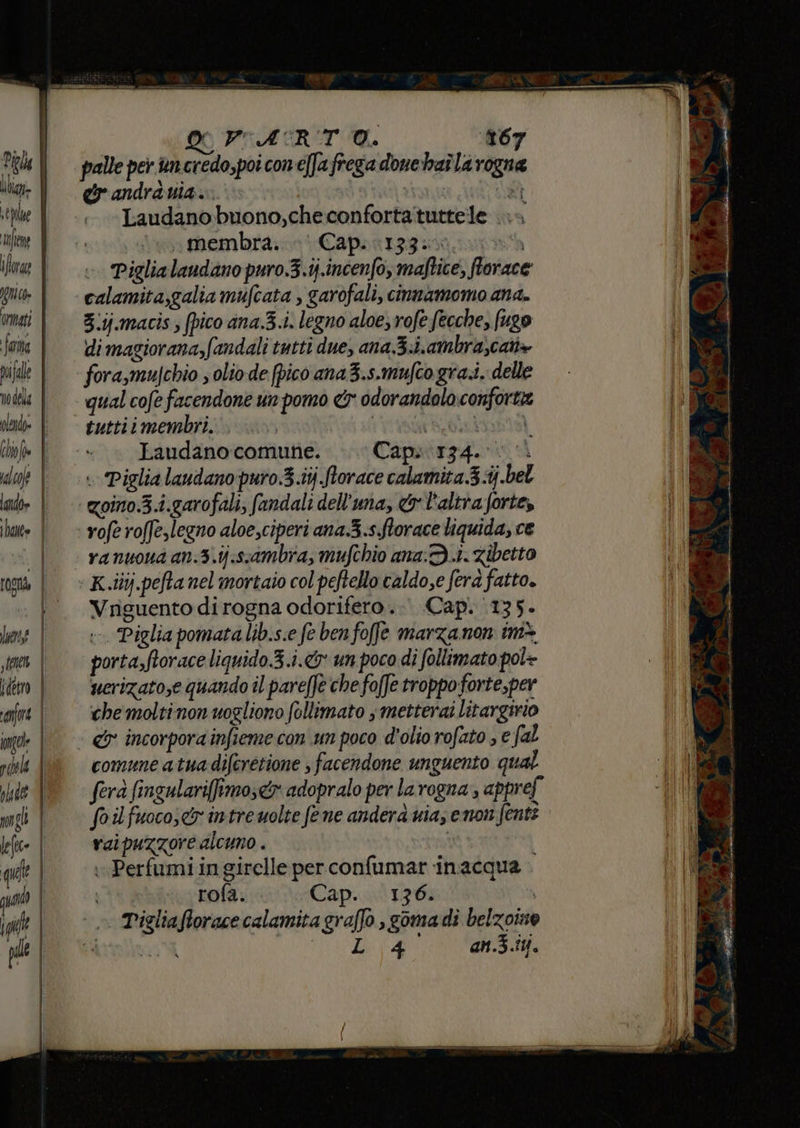 QVARTO. 167
palle per un credo,poi con essa frega doue hai la rogna
& andrà uia.
Laudano buono,che conforta tutte le
membra. Cap. 133.
Piglia laudano puro.ʒ.ij.incenſo, maſtice, ſtorace
calamita,galia muſcata , garofali, cinnamomo ana.
ʒ.ij.macis , ſpico ana.ʒ.i. legno aloe, roſe ſecche, ſugo
di magiorana,ſandali tutti due, ana.ʒ.i.ambra,can-
fora,muſchio , olio de ſpico ana ʒ.s.muſco gra.i. delle
qual coſe facendone un pomo & odorandolo conforta
tutti i membri.
Laudano comune. Cap. 134.
Piglia laudano puro.ʒ.iij.ſtorace calamita.ʒ.ij.bel
zoino.ʒ.i.garofali, ſandali dell'una, & l'altra ſorte,
roſe roſſe,legno aloe,ciperi ana.ʒ.s.ſtorace liquida, ce
ra nuoua an.ʒ.ij.s.ambra, muſchio ana.℈.i. zibetto
K.iiij.peſta nel mortaio col peſtello caldo,e ſerà fatto.
Vnguento di rogna odorifero. Cap. 135.
Piglia pomata lib.s.e ſe ben foſſe marza non im-
porta,ſtorace liquido.ʒ.i.& un poco di ſollimato pol-
uerizato,e quando il pareſſe che foſſe troppo forte,per
che molti non uogliono ſollimato , metterai litargirio
& incorpora inſieme con un poco d'olio roſato , e ſal
comune a tua diſcretione , facendone unguento qual
ſerà ſingulariſſimo,& adopralo per la rogna , appreſ
ſo il fuoco,& in tre uolte ſe ne anderà uia, e non ſenti
rai puzzore alcuno.
Perfumi in girelle per conſumar in acqua
roſa. Cap. 136.
Piglia ſtorace calamita graſſo , goma di belzoine
L 4 an.ʒ.iij.